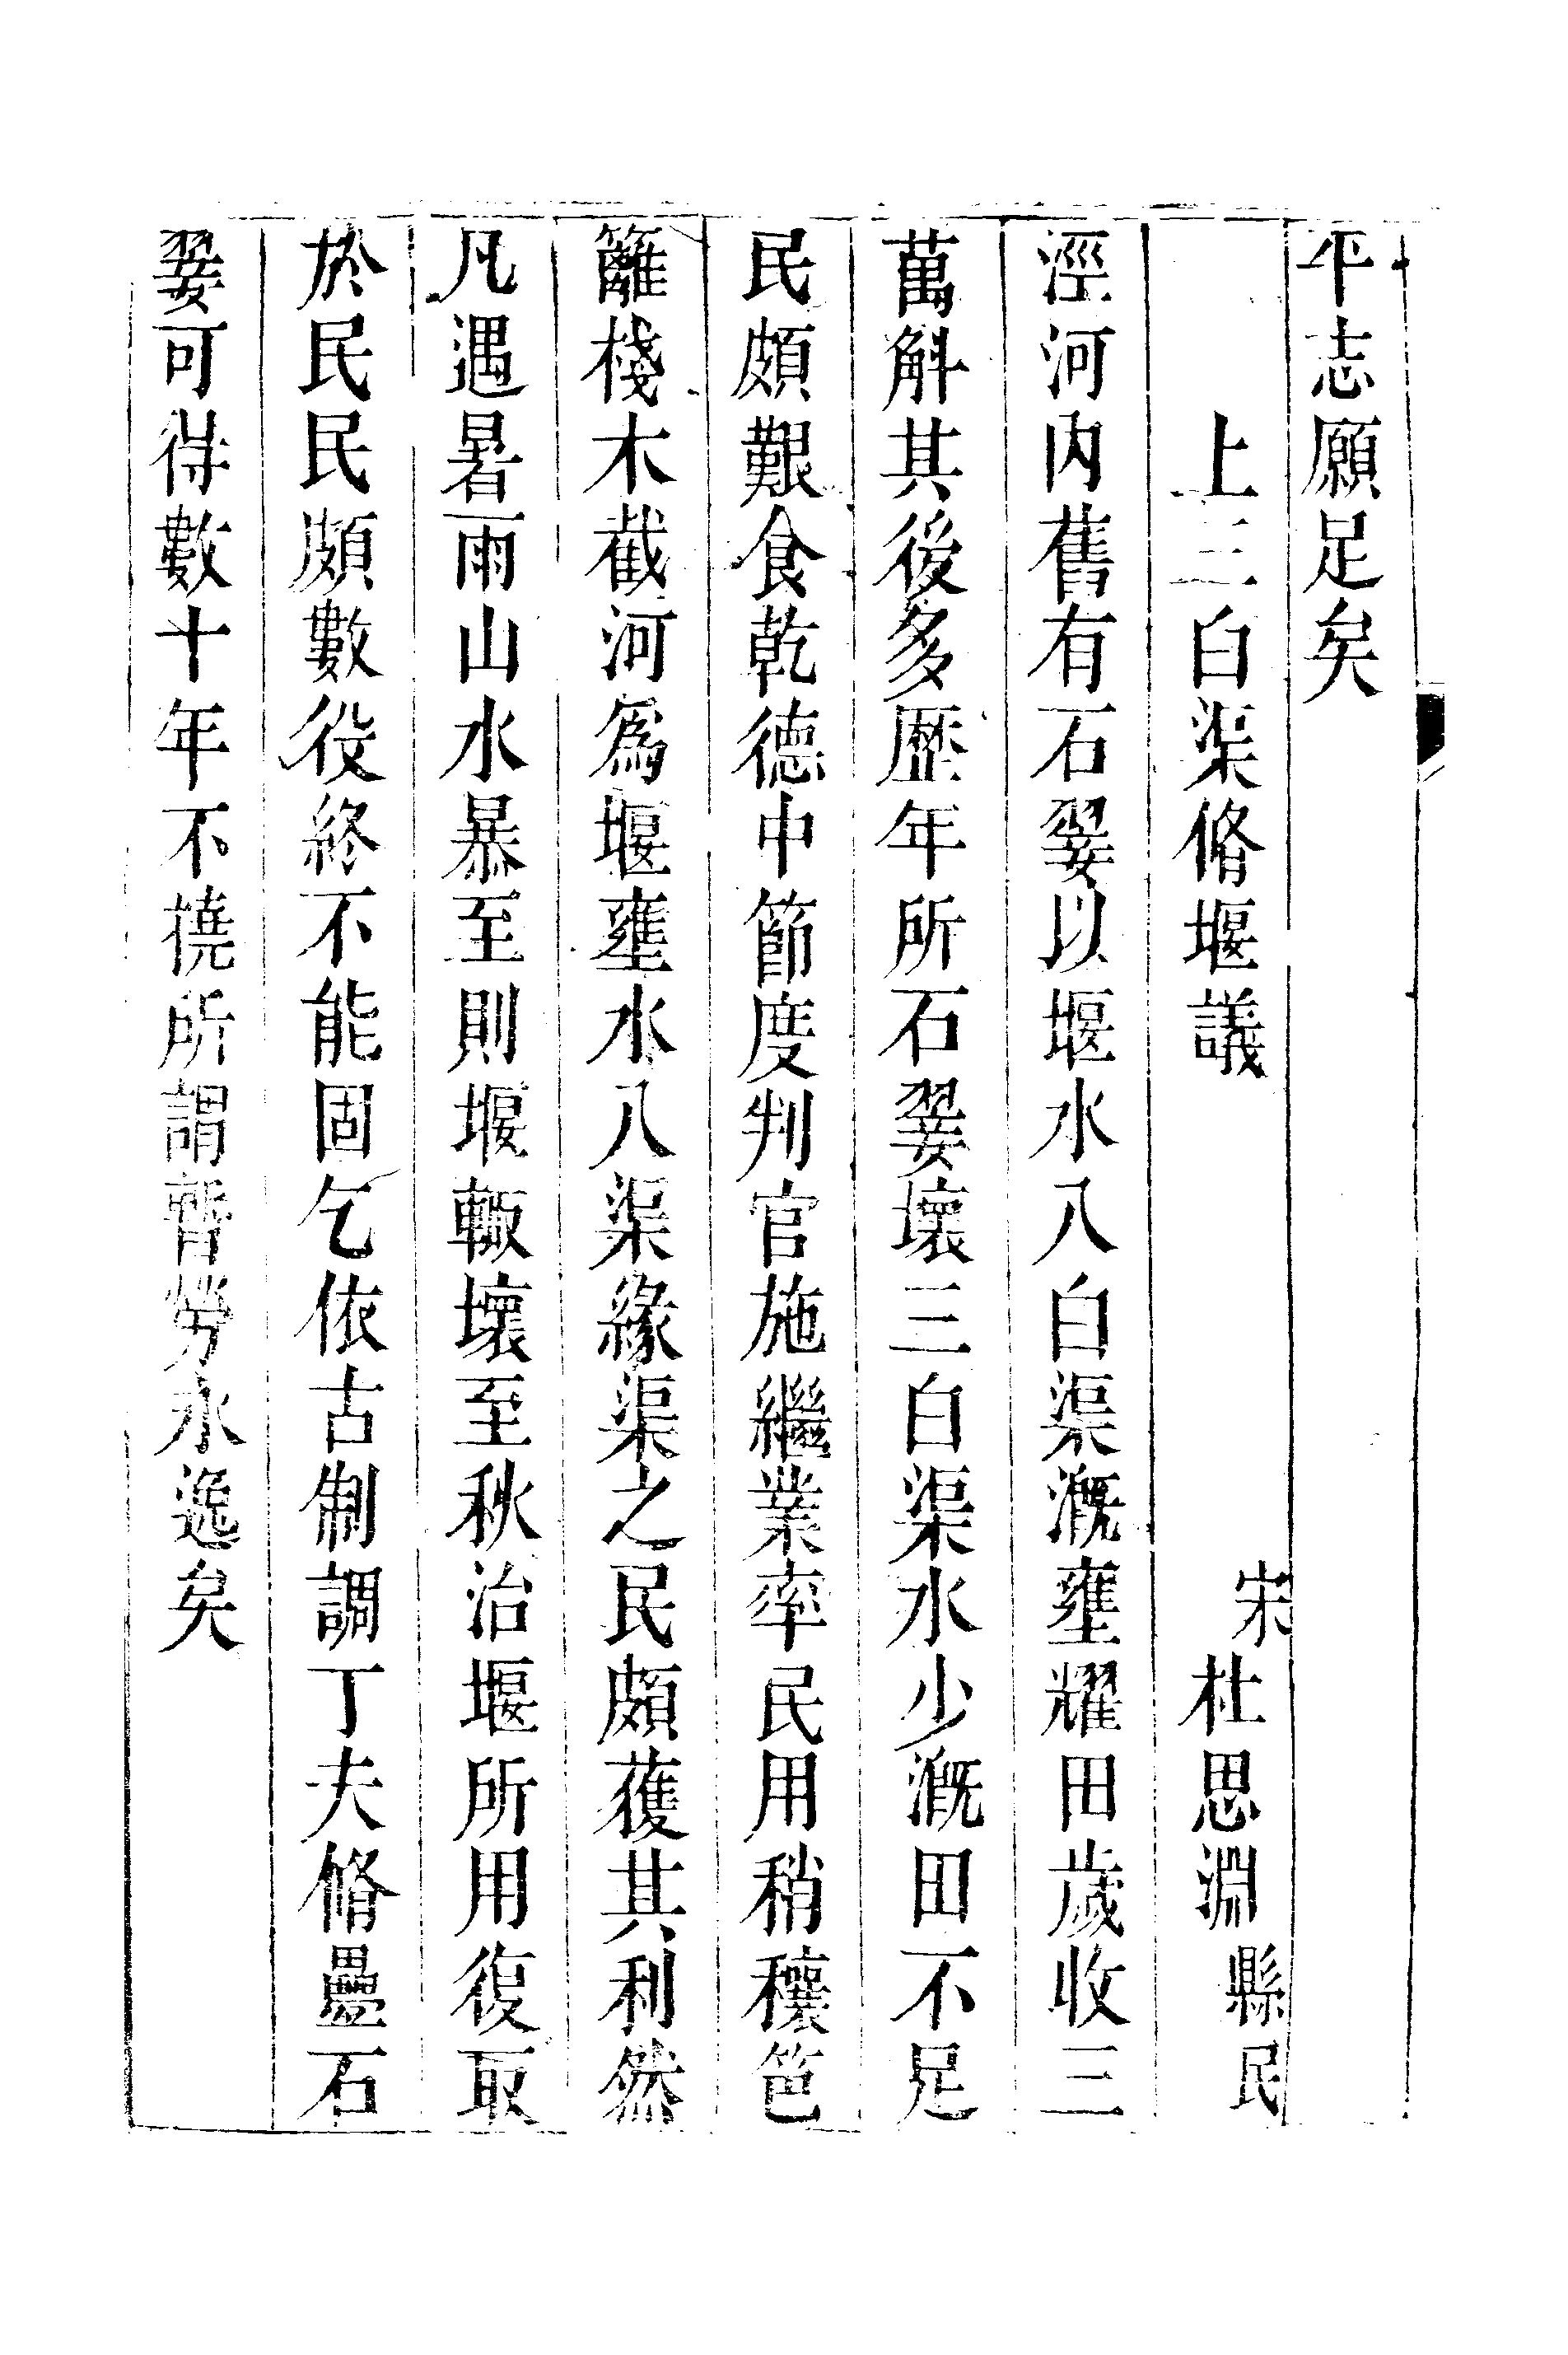 平志願足矣
上三白渠脩堰議　宋杜思淵縣民
涇河内舊有石翣以堰水入白渠溉壅耀田歲收三
萬斛其後多歷年所石翣壞三白渠水少溉田不足
民頗艱食乾德中節度判官施繼業率民用稍穰笆
籬棧木截河爲堰壅水入渠緣渠之民頗獲其利然
凡遇暑雨山水暴至則堰輙壞至秋治堰所用復取
於民民頗數役終不能固乞依古制調丁夫脩疊石
翣可得數十年不撓所謂暫勞永逸矣